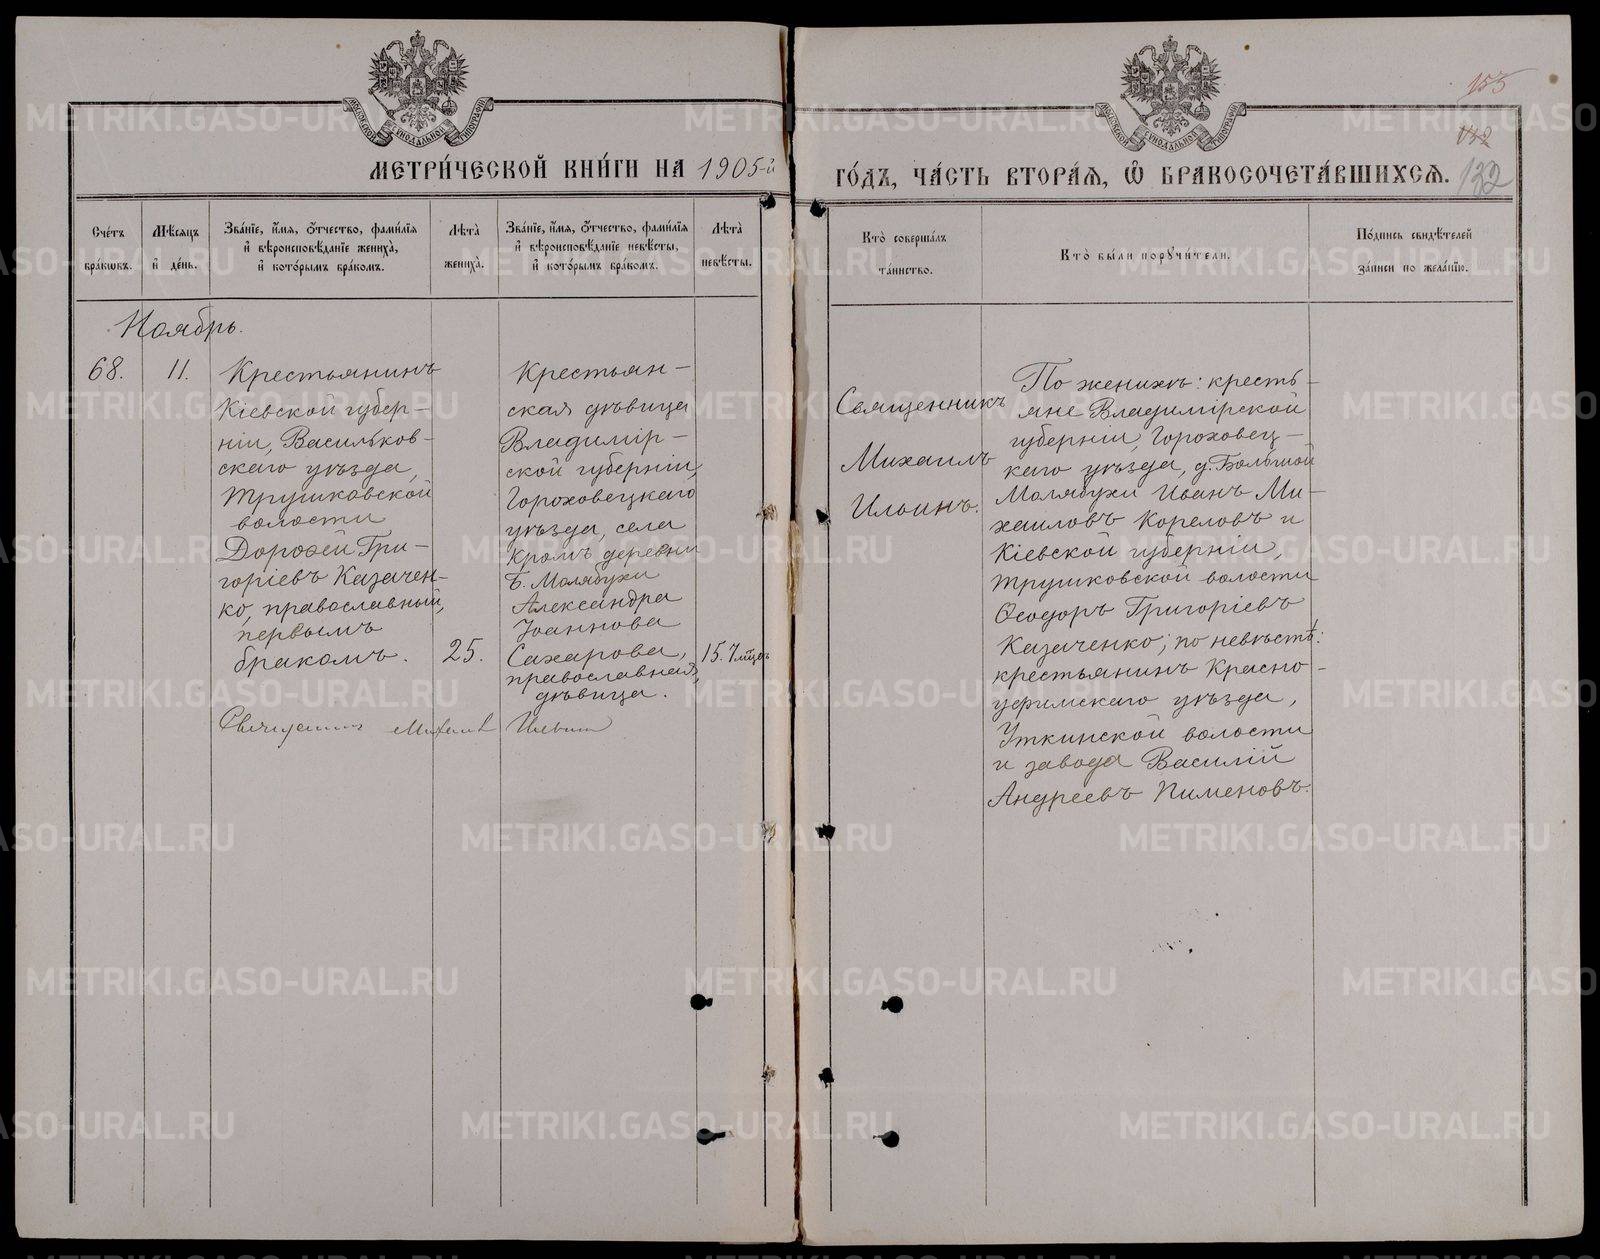 155
132
МЕТРИ́ЧЕСКОЙ КНИ́ГИ НА 1905-й
ГО́ДЪ, ЧА́СТЬ ВТОРА́Ѧ, Ѽ БРАКОСОЧЕТА́ВШИХСѦ.
Сче́тъ бра́кѡвъ.
Мѣ́сяцъ и҆ де́нь.
Зва́нїе, и҆́мѧ, ѻ҆́тчество, фами́лїѧ
и҆ вѣроисповѣ́данїе женихà,
и҆ кото́рымъ бра́комъ.
Лѣ́та женихà.
Зва́нїе, и҆́мѧ, ѻ҆́тчество, фами́лїѧ
и҆ вѣроисповѣ́данїе невѣ́сты,
и҆ кото́рымъ бра́комъ.
Лѣ́та невѣ́сты.
Кто̀ соверша́лъ
та́инство.
Кто̀ бы́ли порꙋчи́тели.
По́дпись свидѣ́телей
за́писи по жела́нїю.
Ноябрь.
68.
11.
Крестьянинъ
Кіевской губер-
ніи, Васильков-
скаго уѣзда,
Трушковской
волости
Дороѳей Гри-
горіевъ Казачен-
ко, православный,
первымъ
бракомъ.
25.
Крестьян-
ская дѣвица
Владимір-
ской губерніи,
Гороховецкаго
уѣзда, села
Кромъ деревни
Б. Молябухи
Александра
Іоаннова
Сахарова,
православная,
дѣвица.
15. 7 мѣцъ
Священникъ Михаилъ Ильинъ
Священникъ
Михаилъ
Ильинъ.
По женихѣ: кресть-
яне Владимірской
губерніи, Гороховец-
каго уѣзда, д. Большой
Молябухи Иванъ Ми-
хаиловъ Кореловъ и
Кіевской губерніи,
Трушковской волости
Ѳеодоръ Григоріевъ
Казаченко; по невѣстѣ:
крестьянинъ Красно-
уфимскаго уѣзда,
Уткинской волости
и завода Василій
Андреевъ Пименовъ.